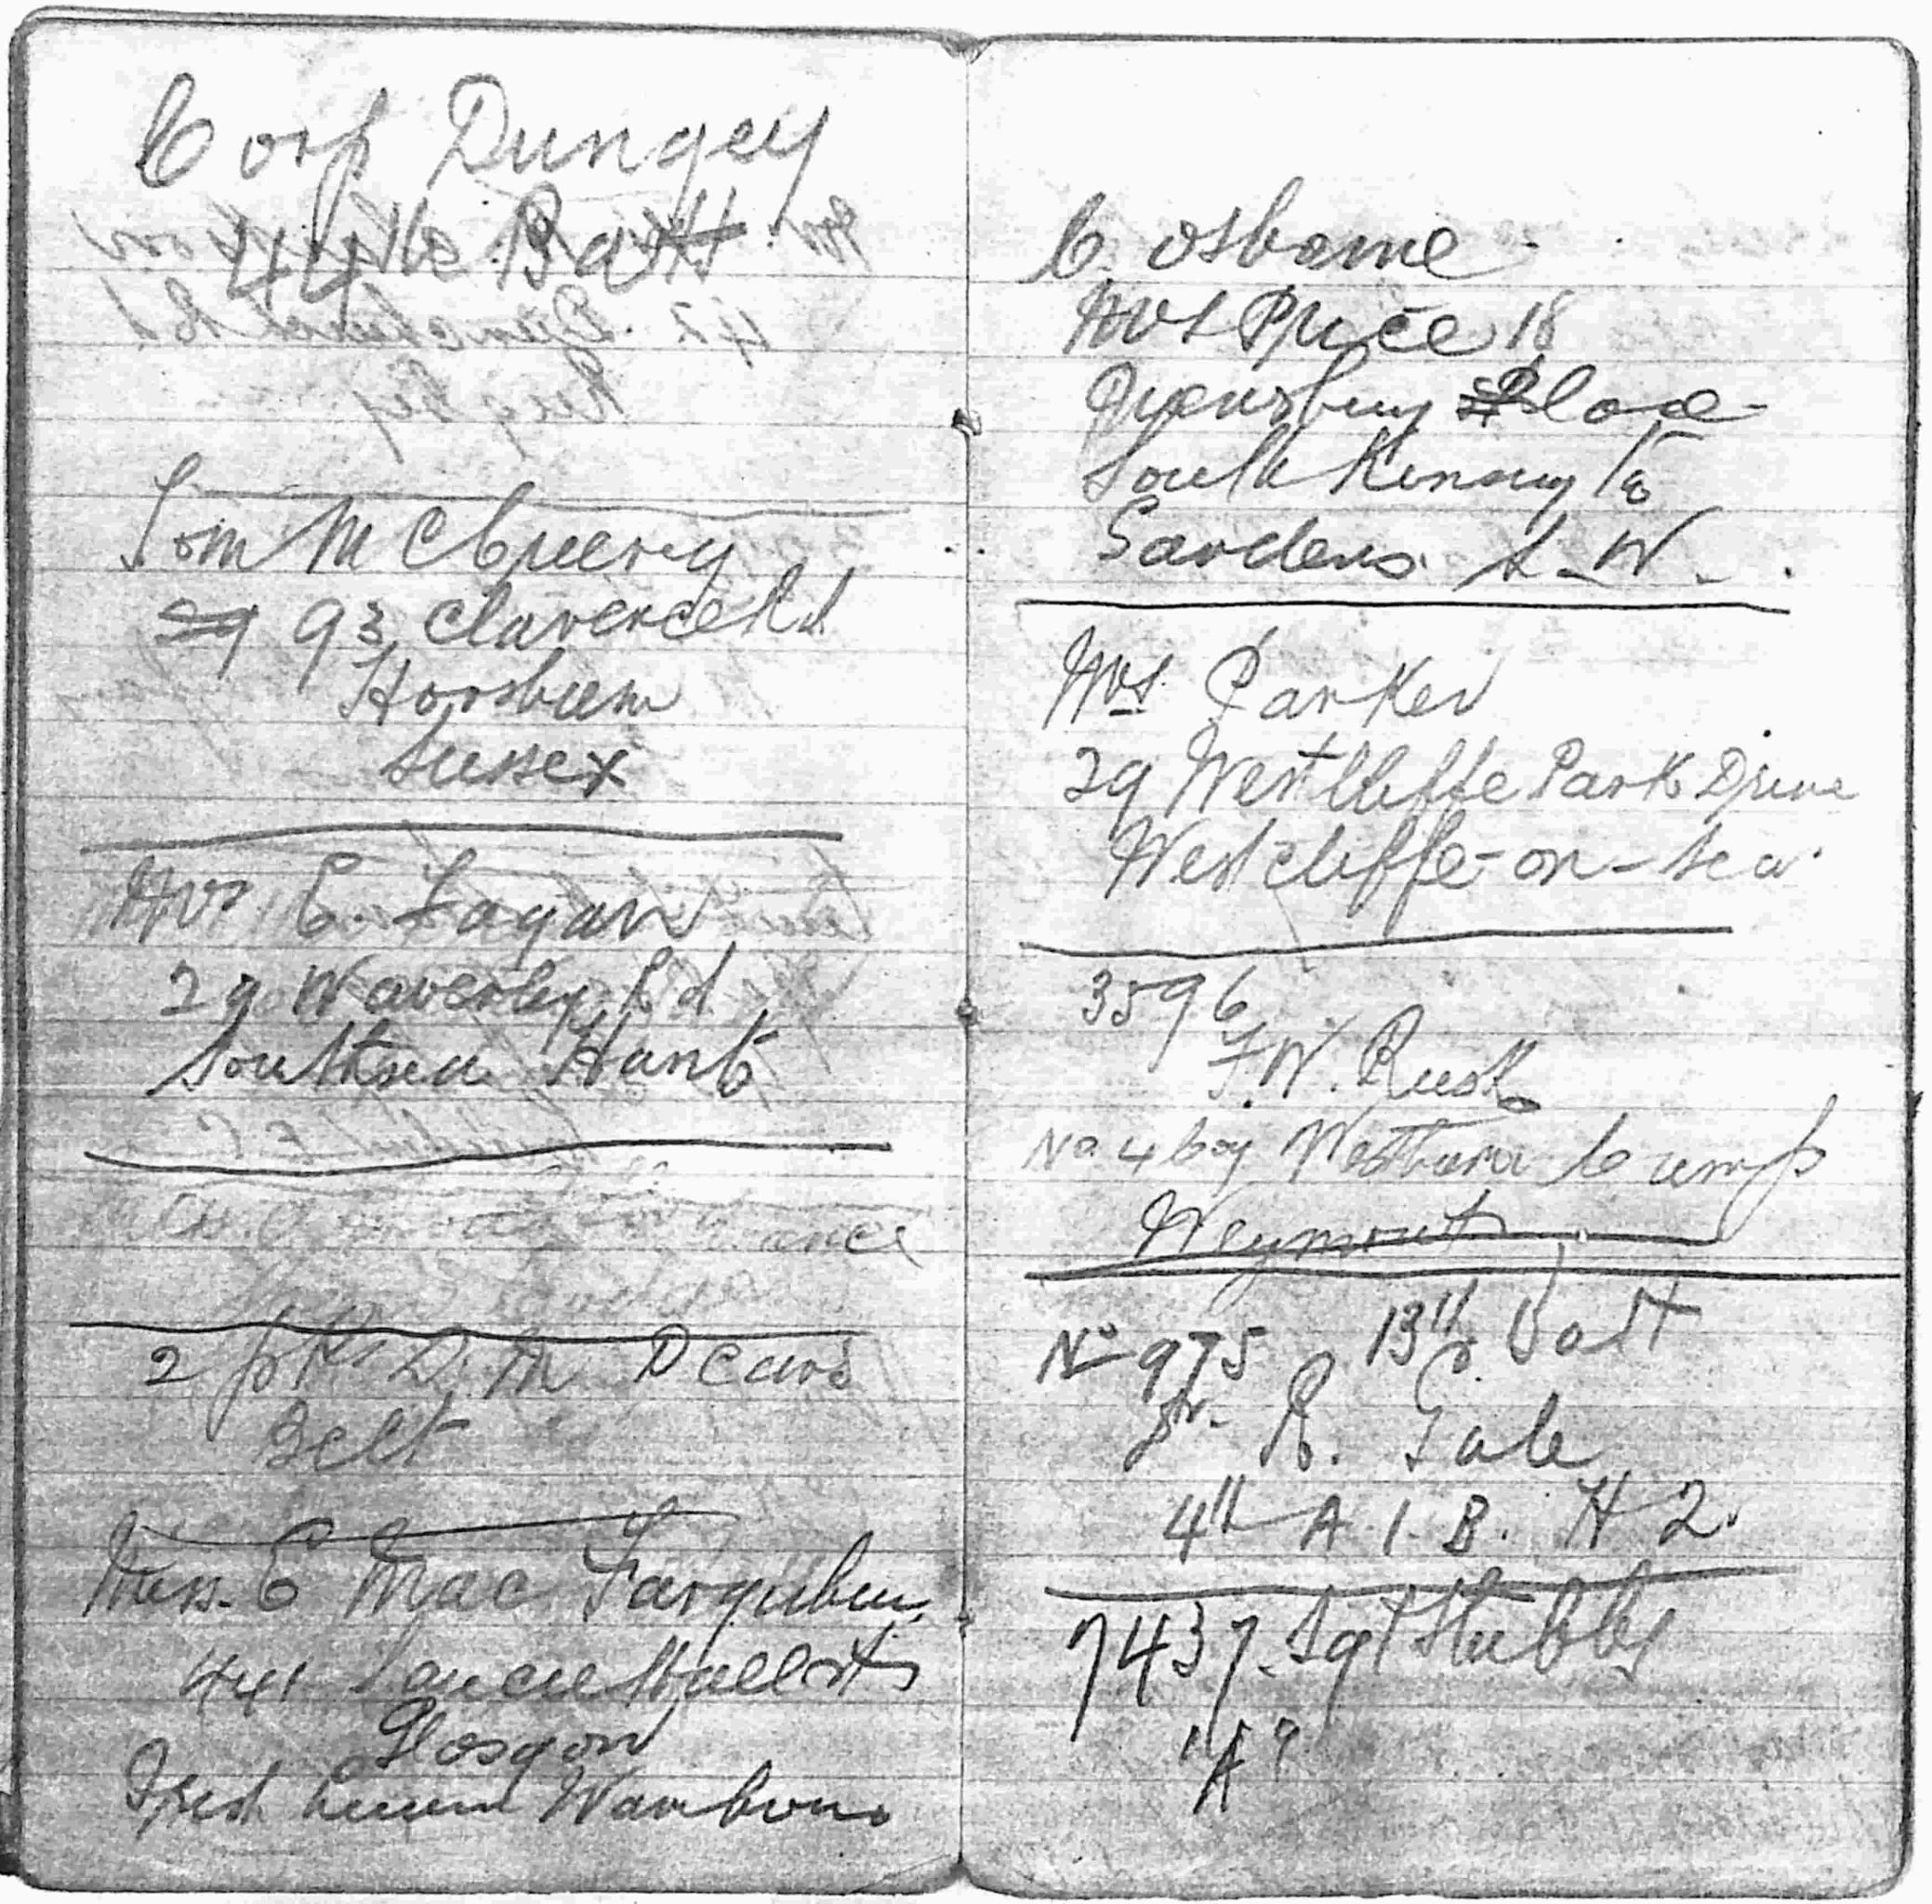 Corp Dungey
44th Batt
Tom McCreery
93 Clarence Rd
Horsham
Sussex
Mrs E. Fagan
29 Waverley Rd
Southsea Hants
2 prs D. M. Pears
Belt
Miss. E Mac Farquhar
441 Sauciehall St
Glasgow
Warbourne
C. Osborne
Mrs Price 18
Queensbury Place
South Kensingto
Gardens S. W.
Mrs Parker
29 Westcliffe Park Drive
Westcliffe-on-Sea
3596
F. W. Rusk
No 4 Coy Westham Camp
Weymouth
No 975 13th Batt
Pr. R. Gale
4th A. I. B. H 2.
7437 Sgt Stubbs
"A"